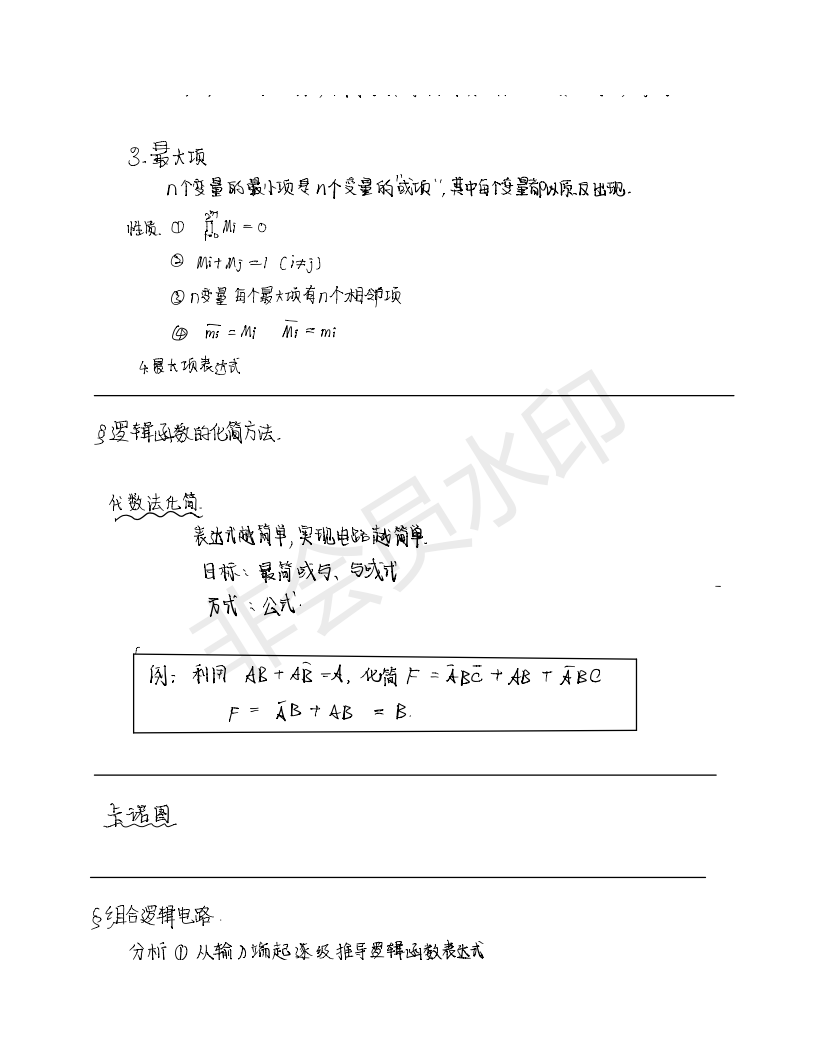 3.最大项
n个变量的最小项是n个变量的“或项”,其中每个变量都以原反出现.
性质. ① ∏ Mi = 0
② Mi + Mj = 1 (i≠j)
③ n变量每个最大项有n个相邻项
④ m̅i̅ = Mi M̅i̅ = mi
4.最大项表达式
§逻辑函数的化简方法.
代数法化简.
表达式越简单,实现电路越简单.
目标:最简或与、与或式
方式:公式.
例:利用 AB + AB̅ = A, 化简 F = A̅BC̅ + AB + A̅BC
F = A̅B + AB = B.
卡诺图
§组合逻辑电路.
分析 ① 从输入端起逐级推导逻辑函数表达式
非会员水印